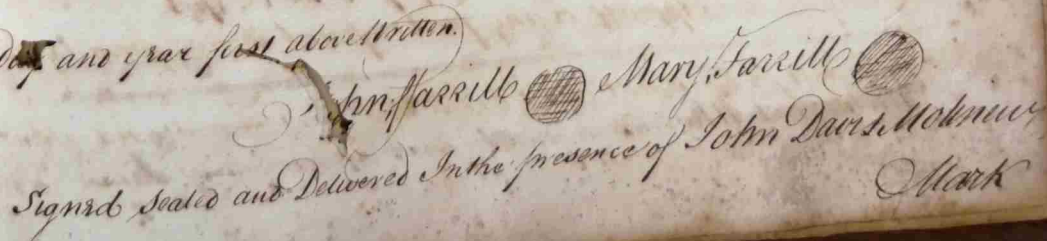 Day and year first above Written.
John Farrill Mary Farrill
Signed sealed and Delivered In the presence of John Davis
Mark